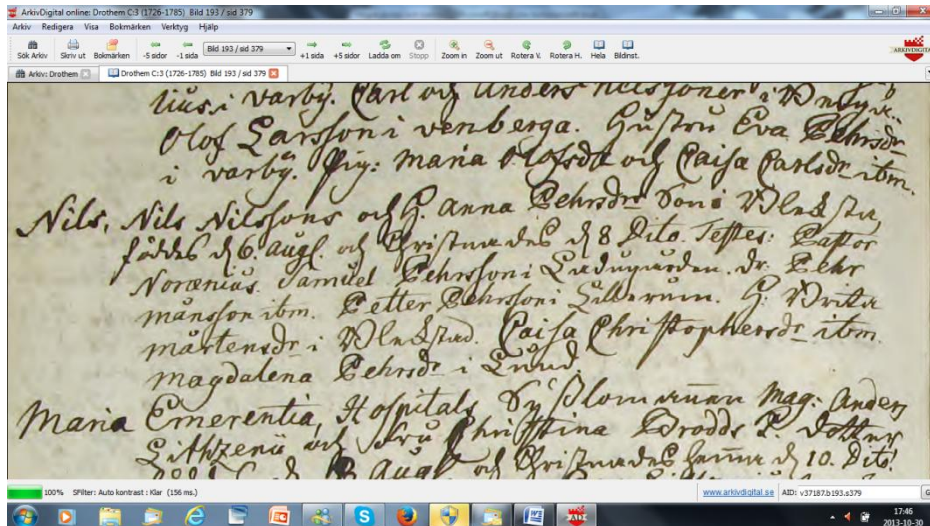 ArkivDigital online: Drothem C:3 (1726-1785) Bild 193 / sid 379
Arkiv Redigera Visa Bokmärken Verktyg Hjälp
Bild 193 / sid 379
Sök Arkiv Skriv ut Bokmärken -5 sidor -1 sida +1 sida +5 sidor Ladda om Stopp Zoom in Zoom ut Rotera V. Rotera H. Hela Bildinst.
ARKIVDIGITAL
Arkiv: Drothem Drothem C:3 (1726-1785) Bild 193 / sid 379
i varby. Carl och Anders Nilssöner i
Olof Larsson i venberga. Hustru Eva Pehrsdr
i varby. Pig: Maria Olofsdr och Caisa Carlsdr ibm.
Nils, Nils Nilssons och H. Anna Pehrsdr Son i
föddes d 6. augl. och Christnades d 8 Dito. Testes: Pastor
Noraenius. Samuel Pehrsson i Ladugården. dr. Pehr
månsson ibm. Petter Pehrsson i Sillerum. H: Brita
mårtensdr i Caisa Christophersdr ibm.
Magdalena Pehrsdr i Lund.
Maria Emerentia, Hospitals Sysslomannen Mag: Anders
och Fru Christina Brodds P. Dotter
aug och Christnades hemma d 10. Dito
100% SFilter: Auto kontrast : Klar (156 ms.) www.arkivdigital.se AID: v37187.b193.s379
17:46
2013-10-30